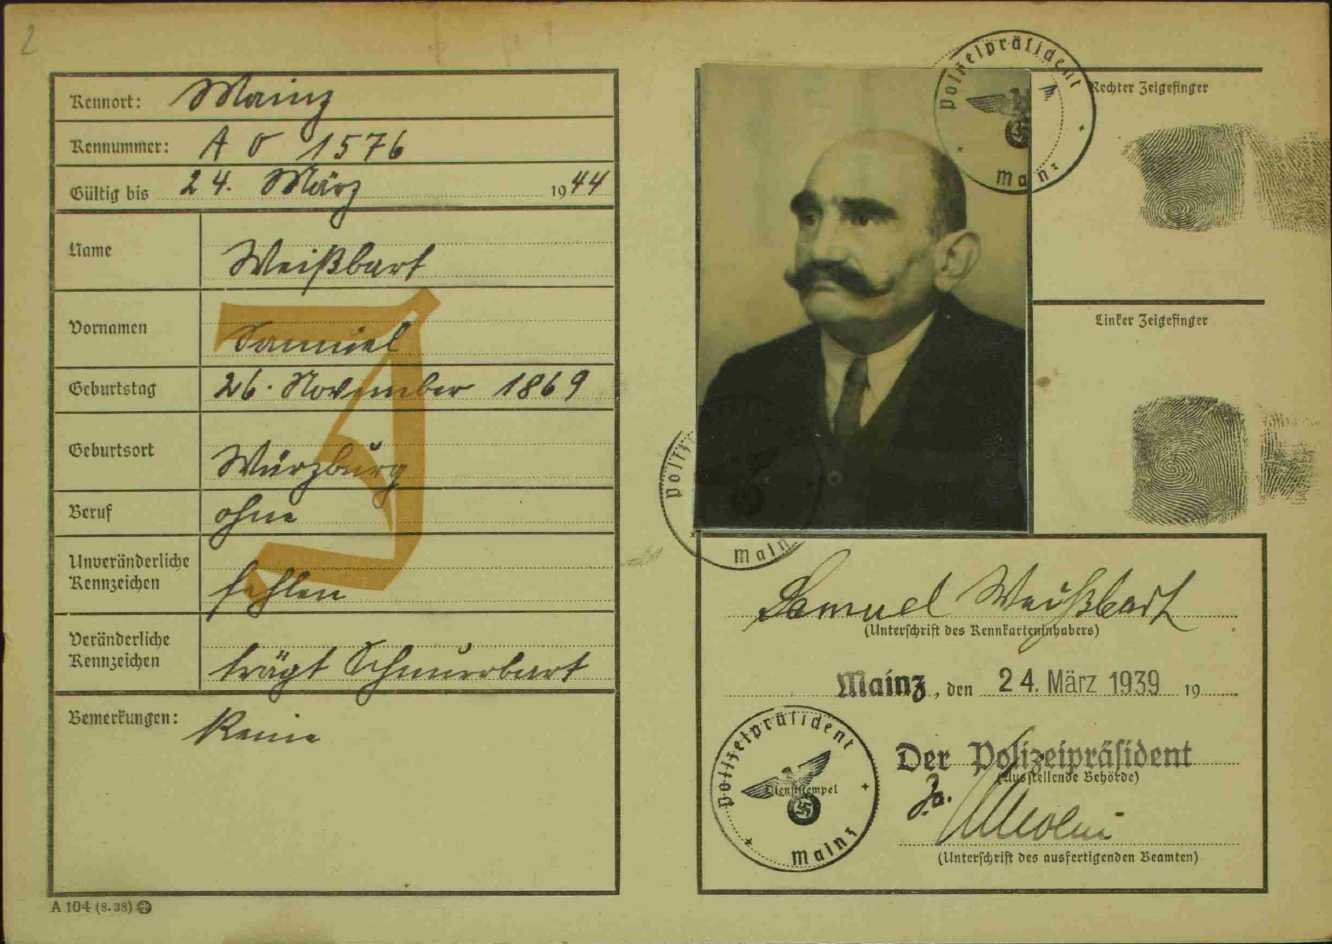 2
Kennort: Mainz
Kennummer: A 0 1576
Gültig bis 24. März 1944
Name Weißbart
Vornamen Samuel
J
Geburtstag 26. November 1869
Geburtsort Würzburg
Beruf ohne
Unveränderliche
Kennzeichen fehlen
Veränderliche
Kennzeichen trägt Schnurrbart
Bemerkungen: Keine
A 104 (8.38)
Polizeipräsident
Mainz
Rechter Zeigefinger
Linker Zeigefinger
Poliz
Mainz
Samuel Weißbart
(Unterschrift des Kennkarteninhabers)
Mainz, den 24. März 1939 19
Polizeipräsident
Dienststempel
Mainz
Der Polizeipräsident
(Ausstellende Behörde)
(Unterschrift des ausfertigenden Beamten)